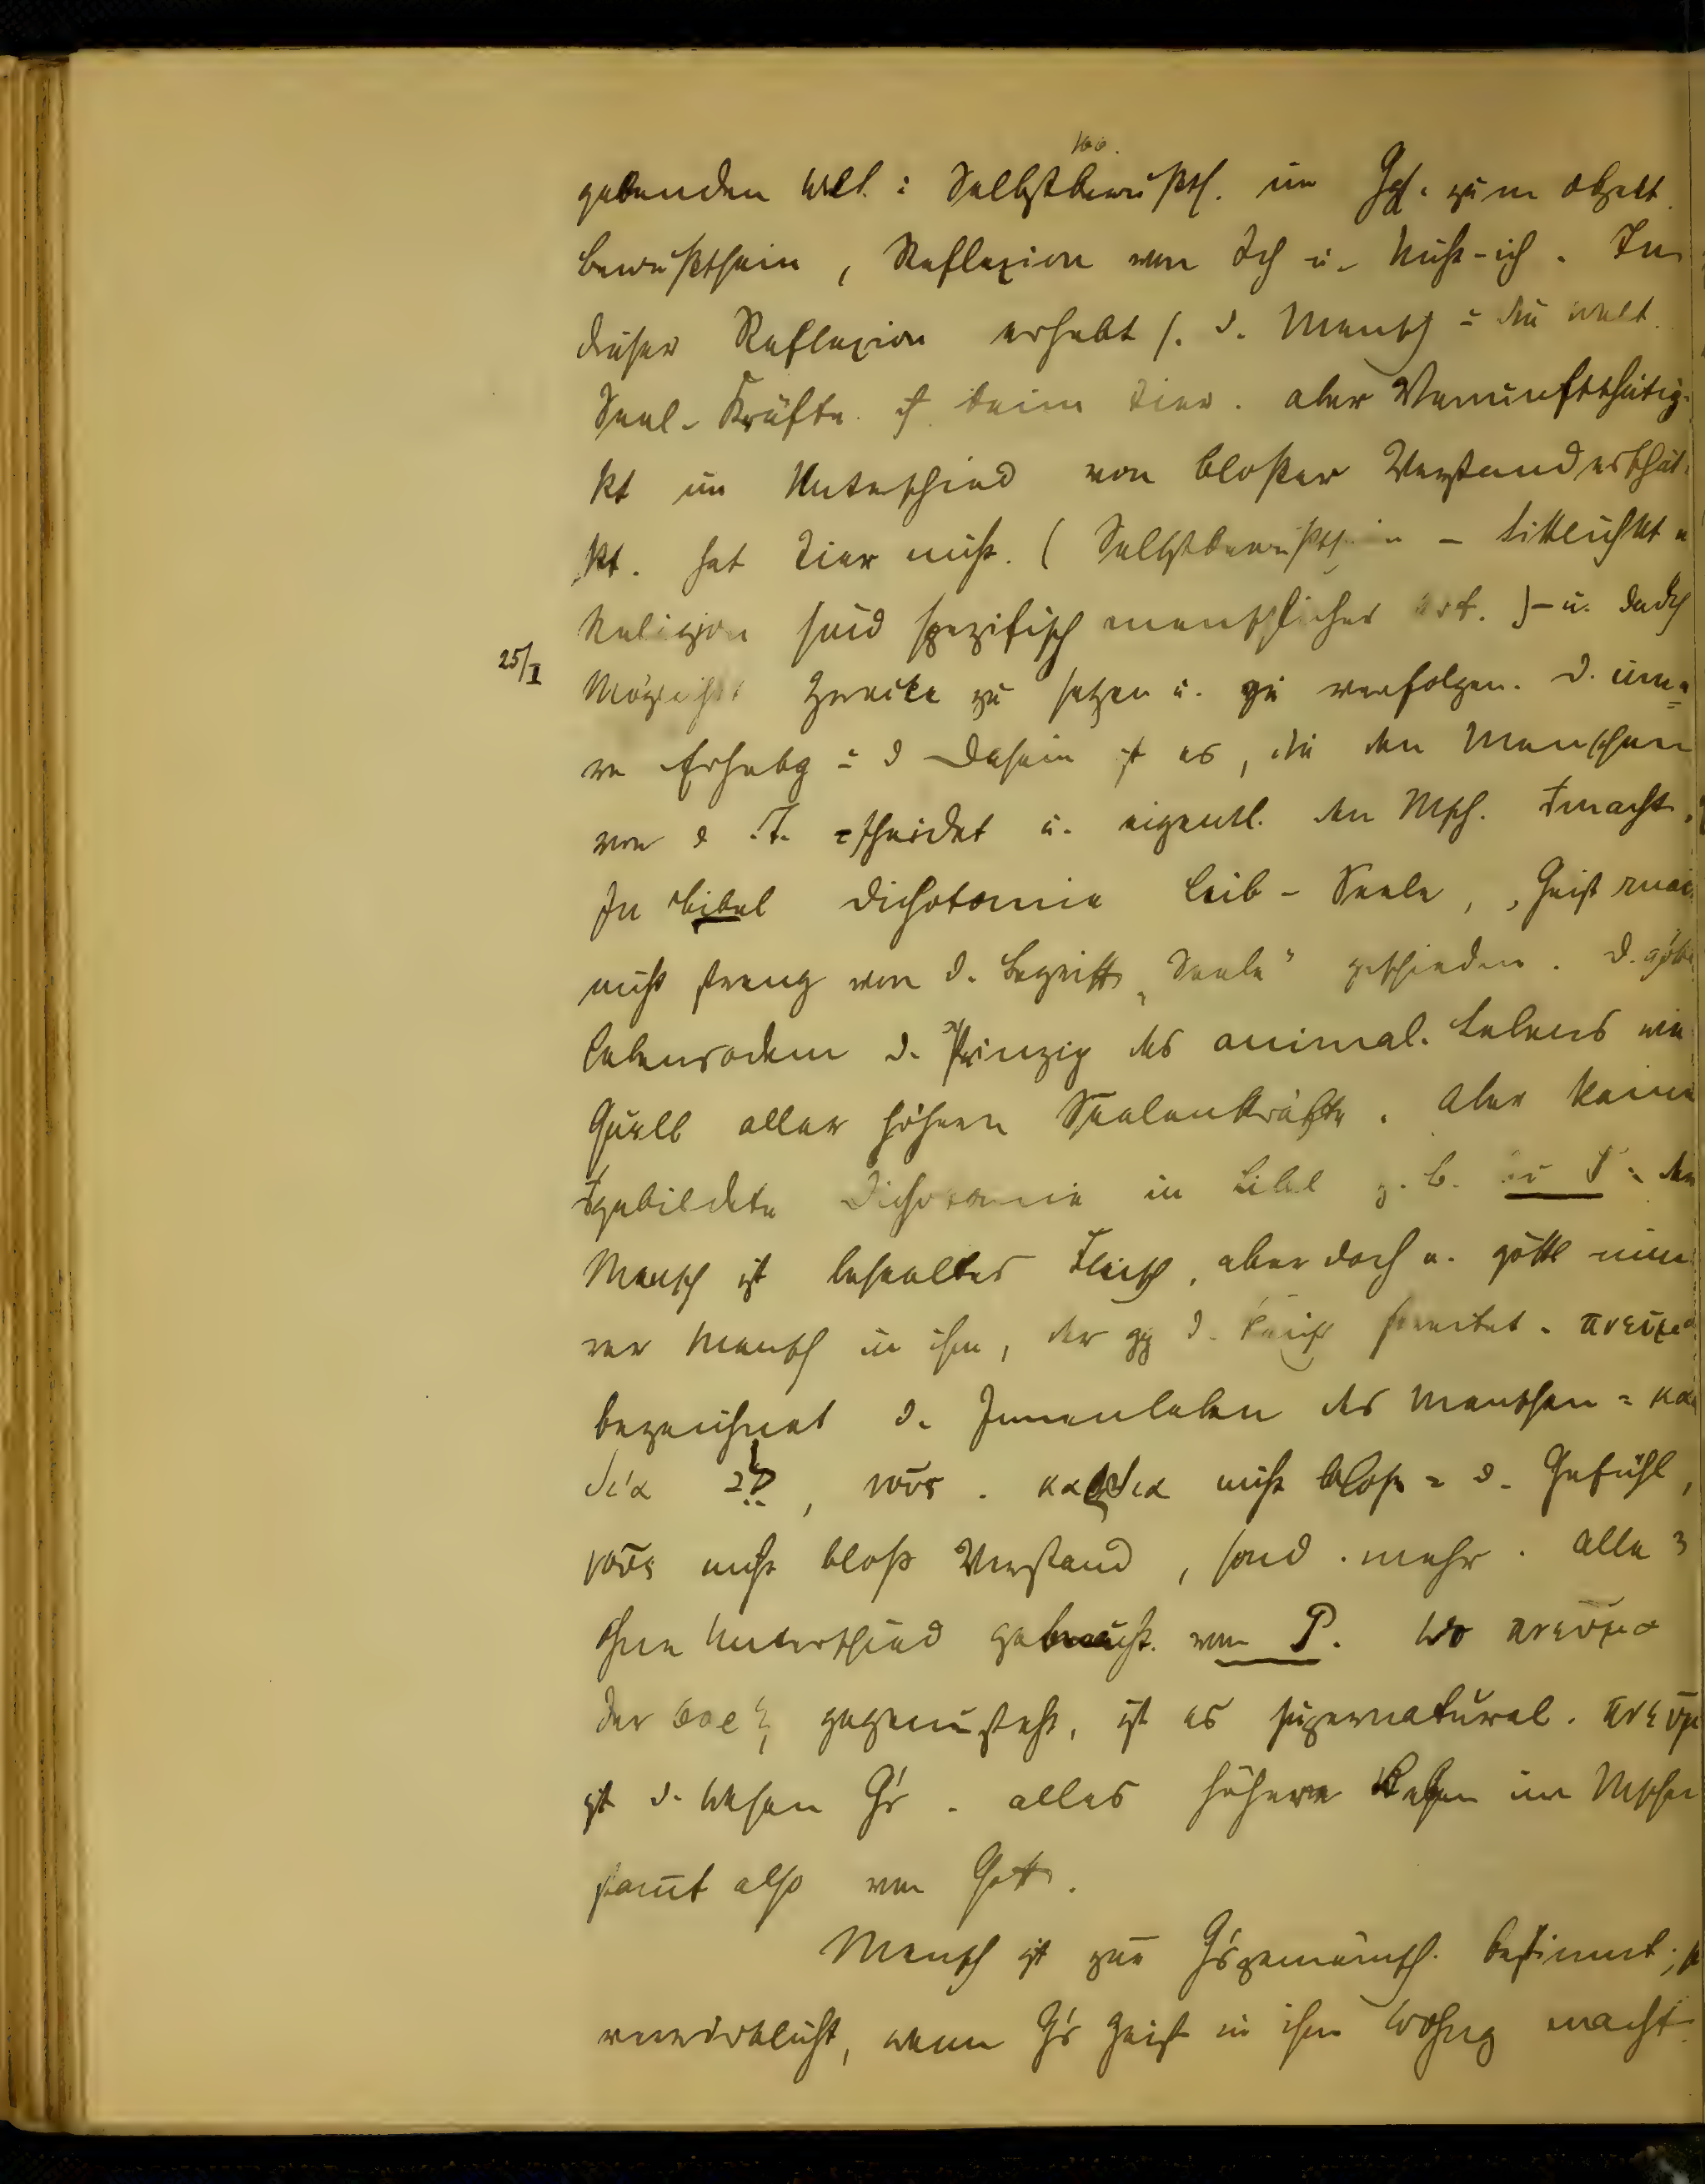 166.
gebenden Welt: Selbstbewußts. im Ggs. zum Objekt
bewußtsein, Reflexion von Ich u. Nicht-ich. In
dieser Reflexion erhebt s. d. Mensch = die Welt.
Seel. Kräfte ist beim Tier. aber Vernunftthätig-
kt im Unterschied von bloßer Verstandesthät.
kt. hat Tier nicht. (Selbstbewußtsein - Sittlichkt u
Religion sind spezifisch menschlicher Art.) - u. dadch
25/I
Möglichkt Zwecke zu setzen u. zu verfolgen. D. inne
re Erhebg = d Dasein ist es, die den Menschen
von d. T. scheidet u. eigentl. den Msch. macht.
In Bibel Dichotomie Leib - Seele, Geist
nicht streng von d. Begriff „Seele" geschieden. D.
Lebensodem d. Prinzip des animal. Lebens wie
Quell aller höhern Seelenkräfte. Aber keine
gebildete Dichotomie in Bibel z. B. P: der
Mensch ist beseeltes Fleisch, aber doch e. göttl inne
rer Mensch in ihm, der gg d. streitet. πνεῦμα
bezeichnet d. Innenleben des Menschen = κα
δία, νοῦς. καρδια nicht bloß = d. Gefühl,
νοῦς nicht bloß Verstand, sond. mehr. Alle 3
ohne Unterschied gebraucht von P. Wo πνεῦμα
der σαρξ gegenübersteht, ist es supernatural. πνεῦμ
ist d. Wesen G's. alles höhere Leben im Mschen
stamt also von Gott.
Mensch ist zur G'sgemeinsch. bestimmt;
verwirklicht, wenn G's Geist in ihm Wohng macht